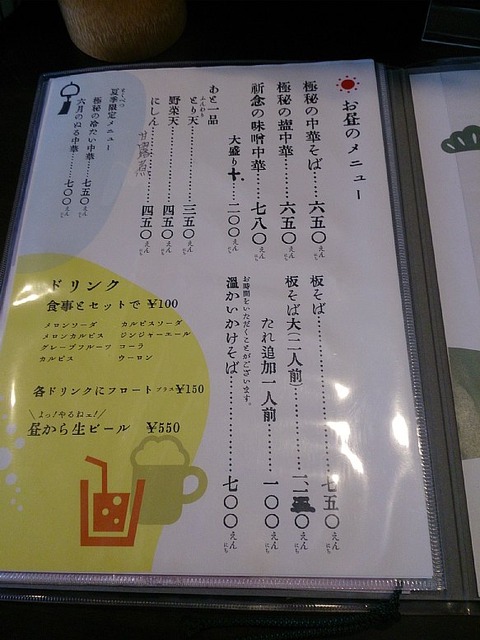 お昼のメニュー
極秘の中華そば……六五〇えん
極秘の塩中華……六五〇えん
祈念の味噌中華……七八〇えん
大盛り十……一〇〇えん
あと一品
ふんわり
とり天……三五〇えん
野菜天……四五〇えん
にしん……四五〇えん
甘露煮
夏季限定メニュー
極秘の冷たい中華……七五〇えん
六月のぬる中華……七〇〇えん
板そば……七五〇えん
板そば大(二人前)
たれ追加一人前……一〇〇えん
お時間をいただくことがございます。
温かいかけそば……七〇〇えん
ドリンク
食事とセットで ¥100
メロンソーダ カルピスソーダ
メロンカルピス ジンジャーエール
グレープフルーツ コーラ
カルピス ウーロン
各ドリンクにフロートプラス¥150
\よっ!やるねェ!/
昼から生ビール ¥550